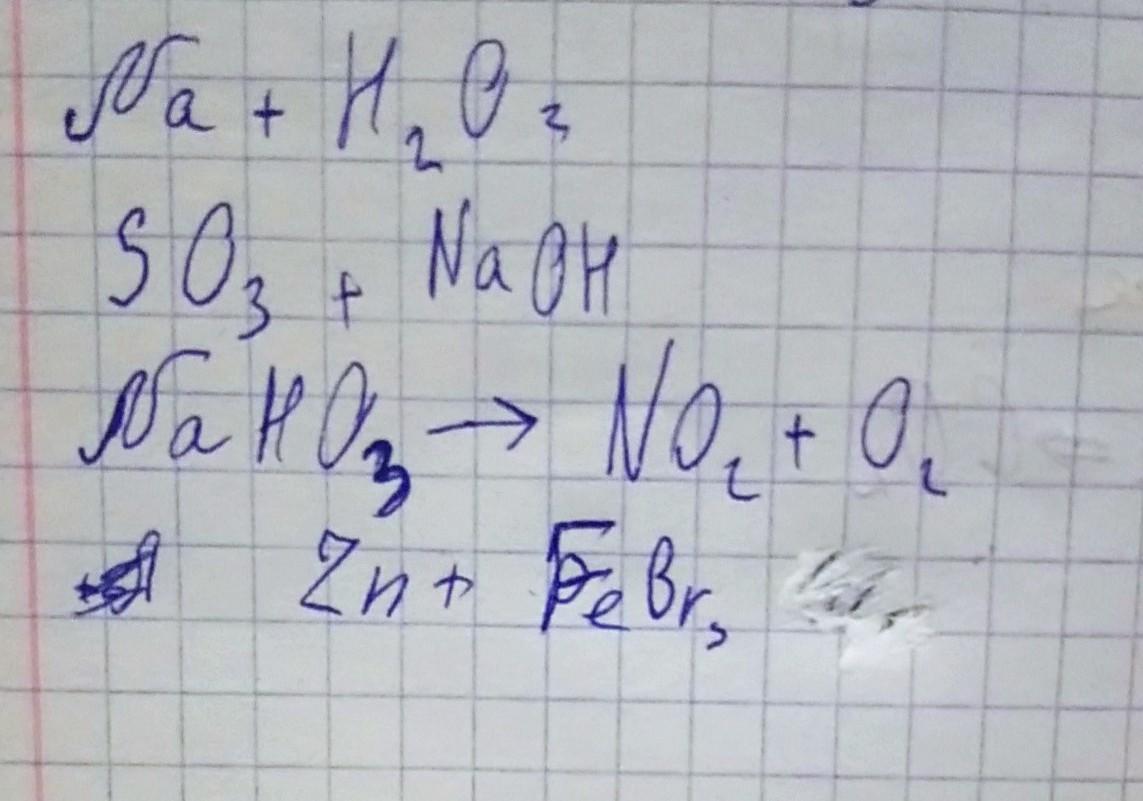 Na + H₂O₂
SO₃ + NaOH
NaHO₃ → NO₂ + O₂
Zn + FeBr₃